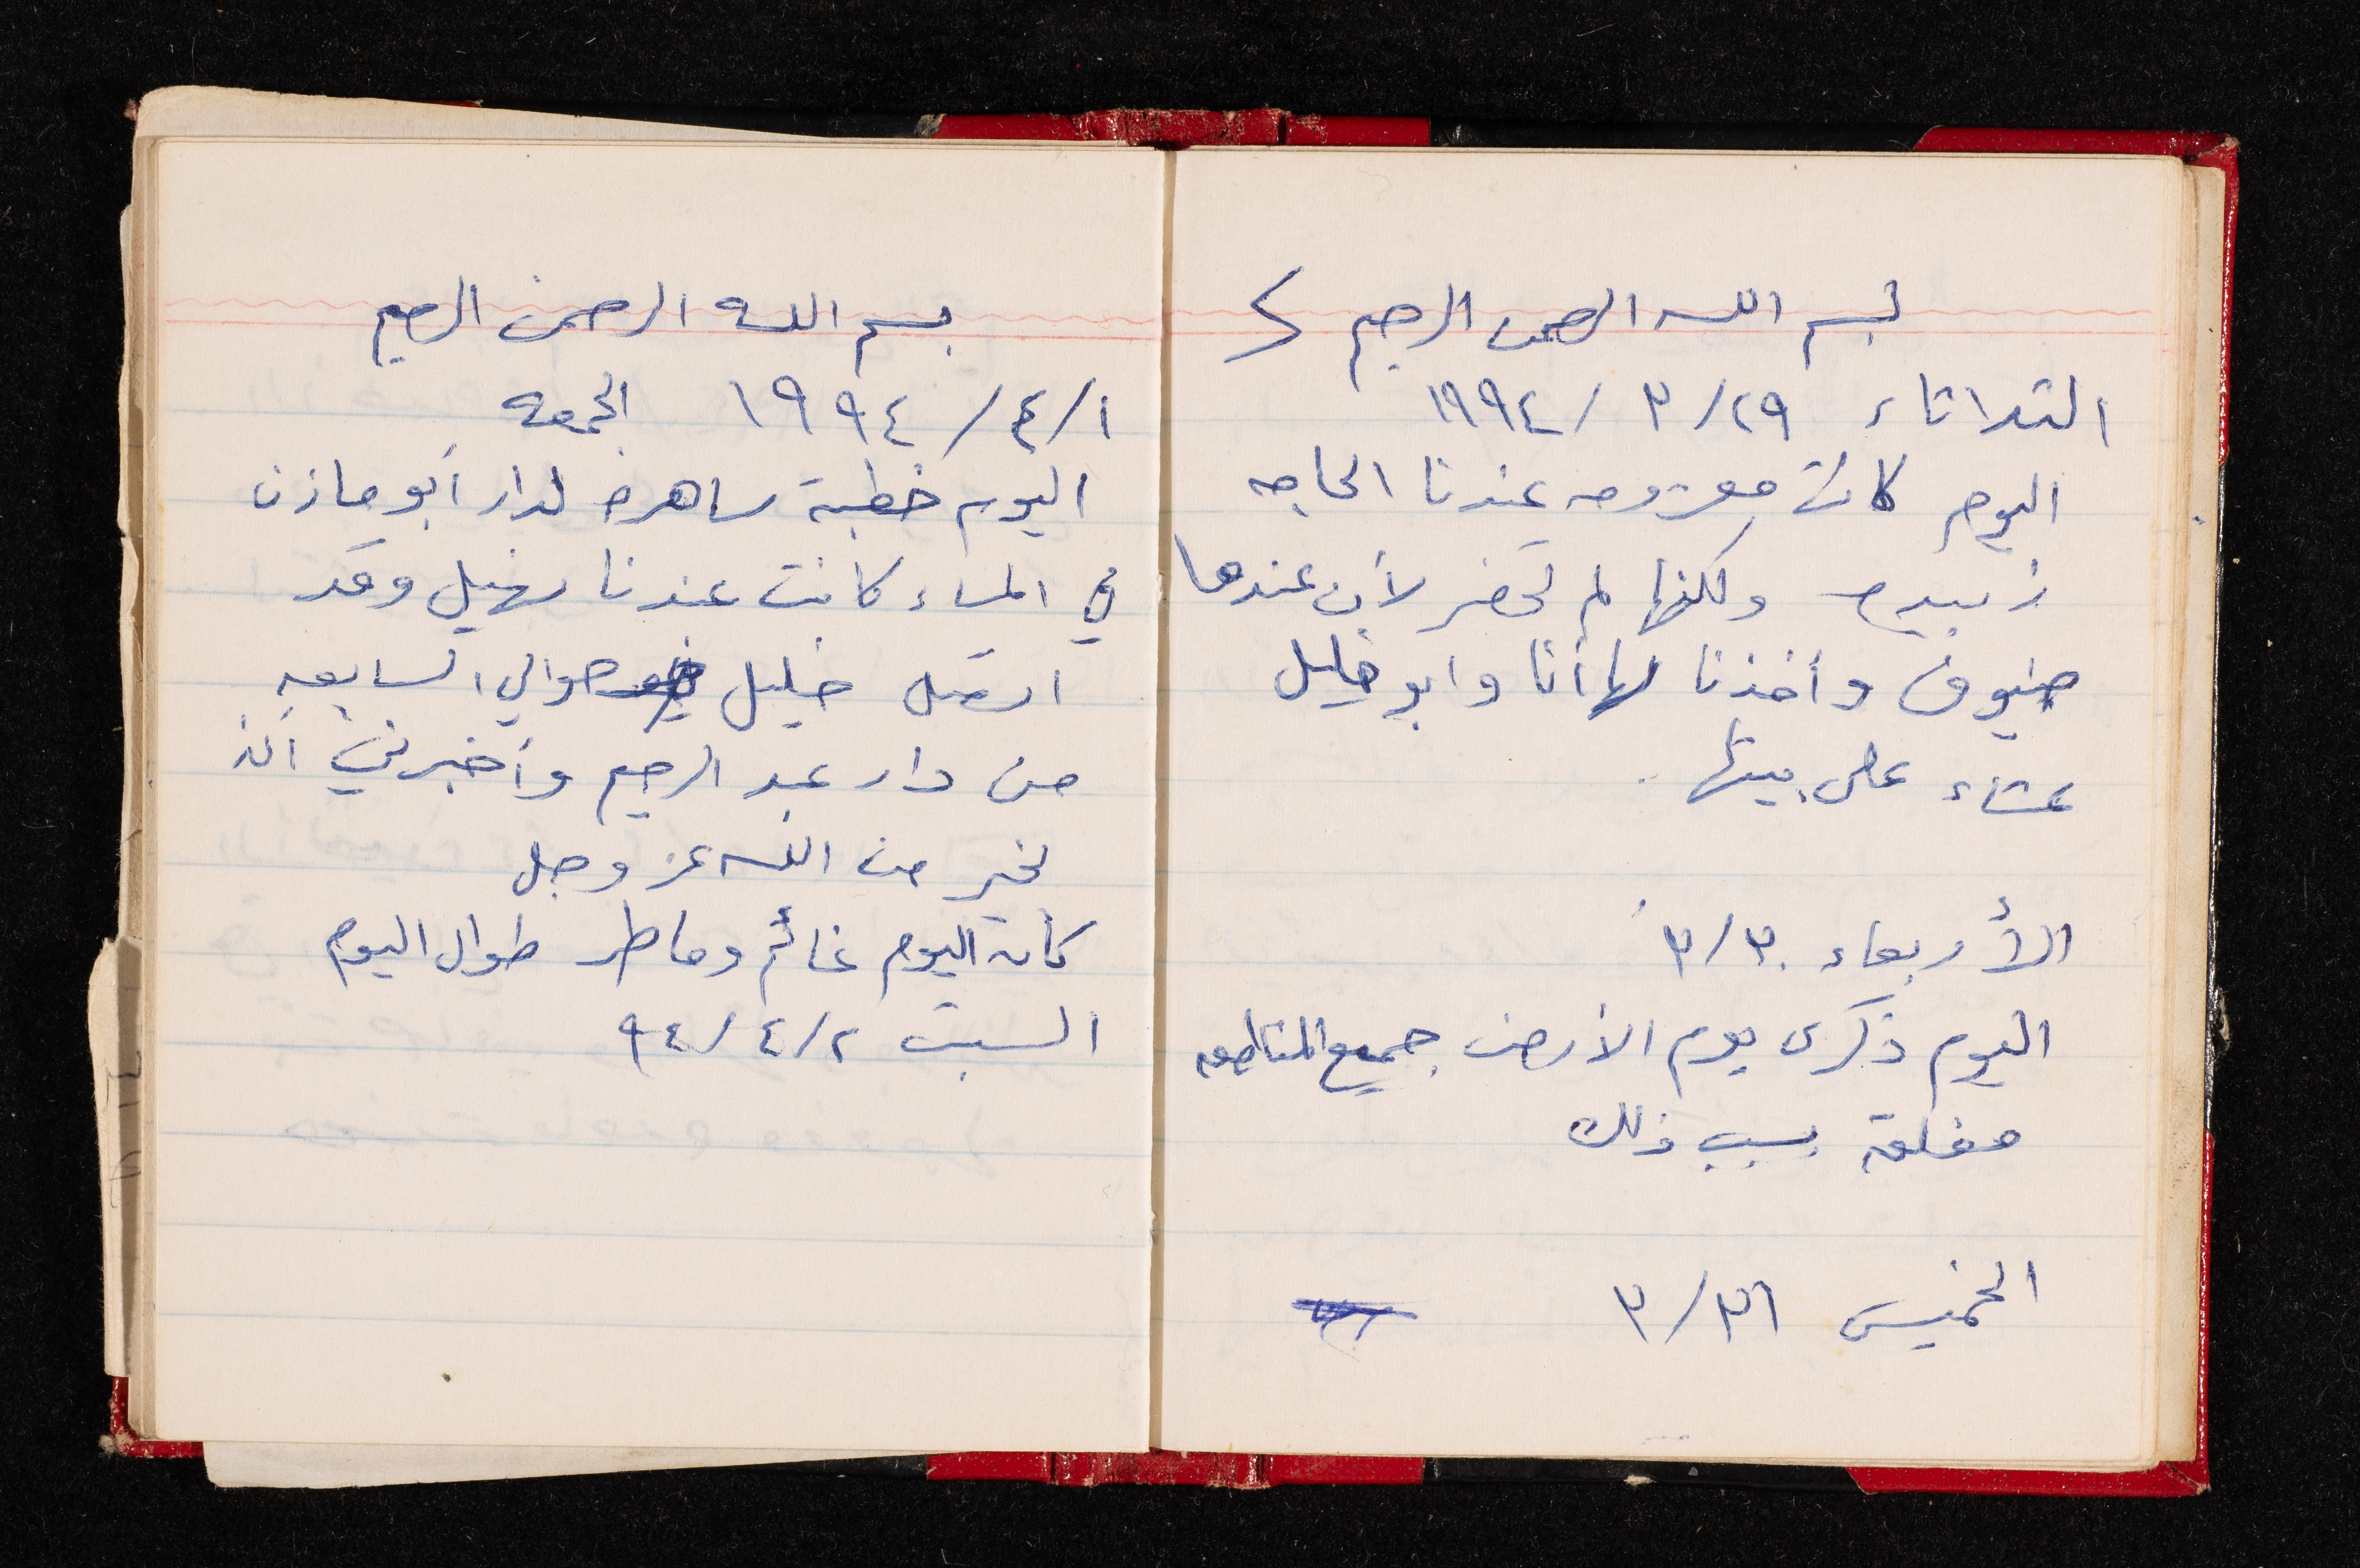 بسم الله الرحمن الرحيم
الثلاثاء ٢٩/ ٣ /١٩٩٤
اليوم كانت معزومه عندنا الحاجه
زبيده ولكنها لم تحضر لأن عندها
ضيوف وأخذنا لها أنا وابو خليل
عشاء على بيتها .
الأربعاء ٣٠/٣
اليوم ذكرى يوم الأرض جميع المناطق
مغلقة بسبب ذلك
الخميس ٣١/٣
بسم الله الرحمن الرحيم
١/٤/ ١٩٩٤ الجمعه
اليوم خطبة ساهره لدار أبو مازن
في المساء كانت عندنا سهيل وقد
اتصل خليل حوالي السابعه
من دار عبد الرحيم وأخبرني انه
بخير من الله عز وجل
كان اليوم غائم وماطر طوال اليوم
السبت ٢/٤/٩٤